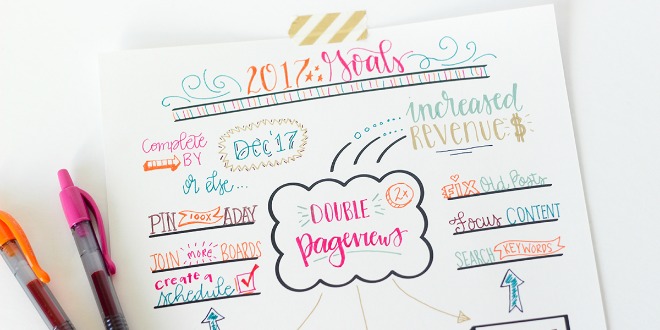 2017 Goals
increased
REVENUE $
Complete
BY
Dec '17
or else...
PIN 100X A DAY
JOIN more BOARDS
create a
schedule
DOUBLE
2x
Pageviews
FIX Old Posts
Focus CONTENT
SEARCH KEYWORDS